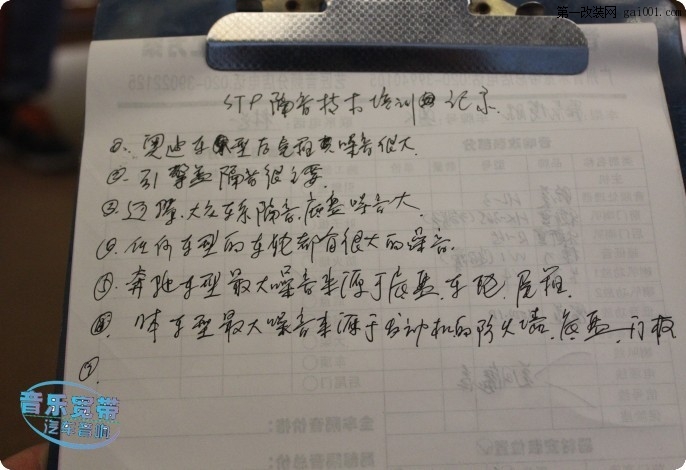 第一改装网 gai001.com
STP隔音技术培训记录
①、奥迪车型后尾箱噪音很大
②、引擎盖隔音很主要
③、迈腾、大众车系隔音、底盘噪音大
④、任何车型的车轮都有很大的噪音
⑤、奔驰车型最大噪音来源于底盘、车轮、尾箱
⑥、 车型最大噪音来源于发动机的防火墙、底盘、
⑦、
音乐宽带
汽车音响